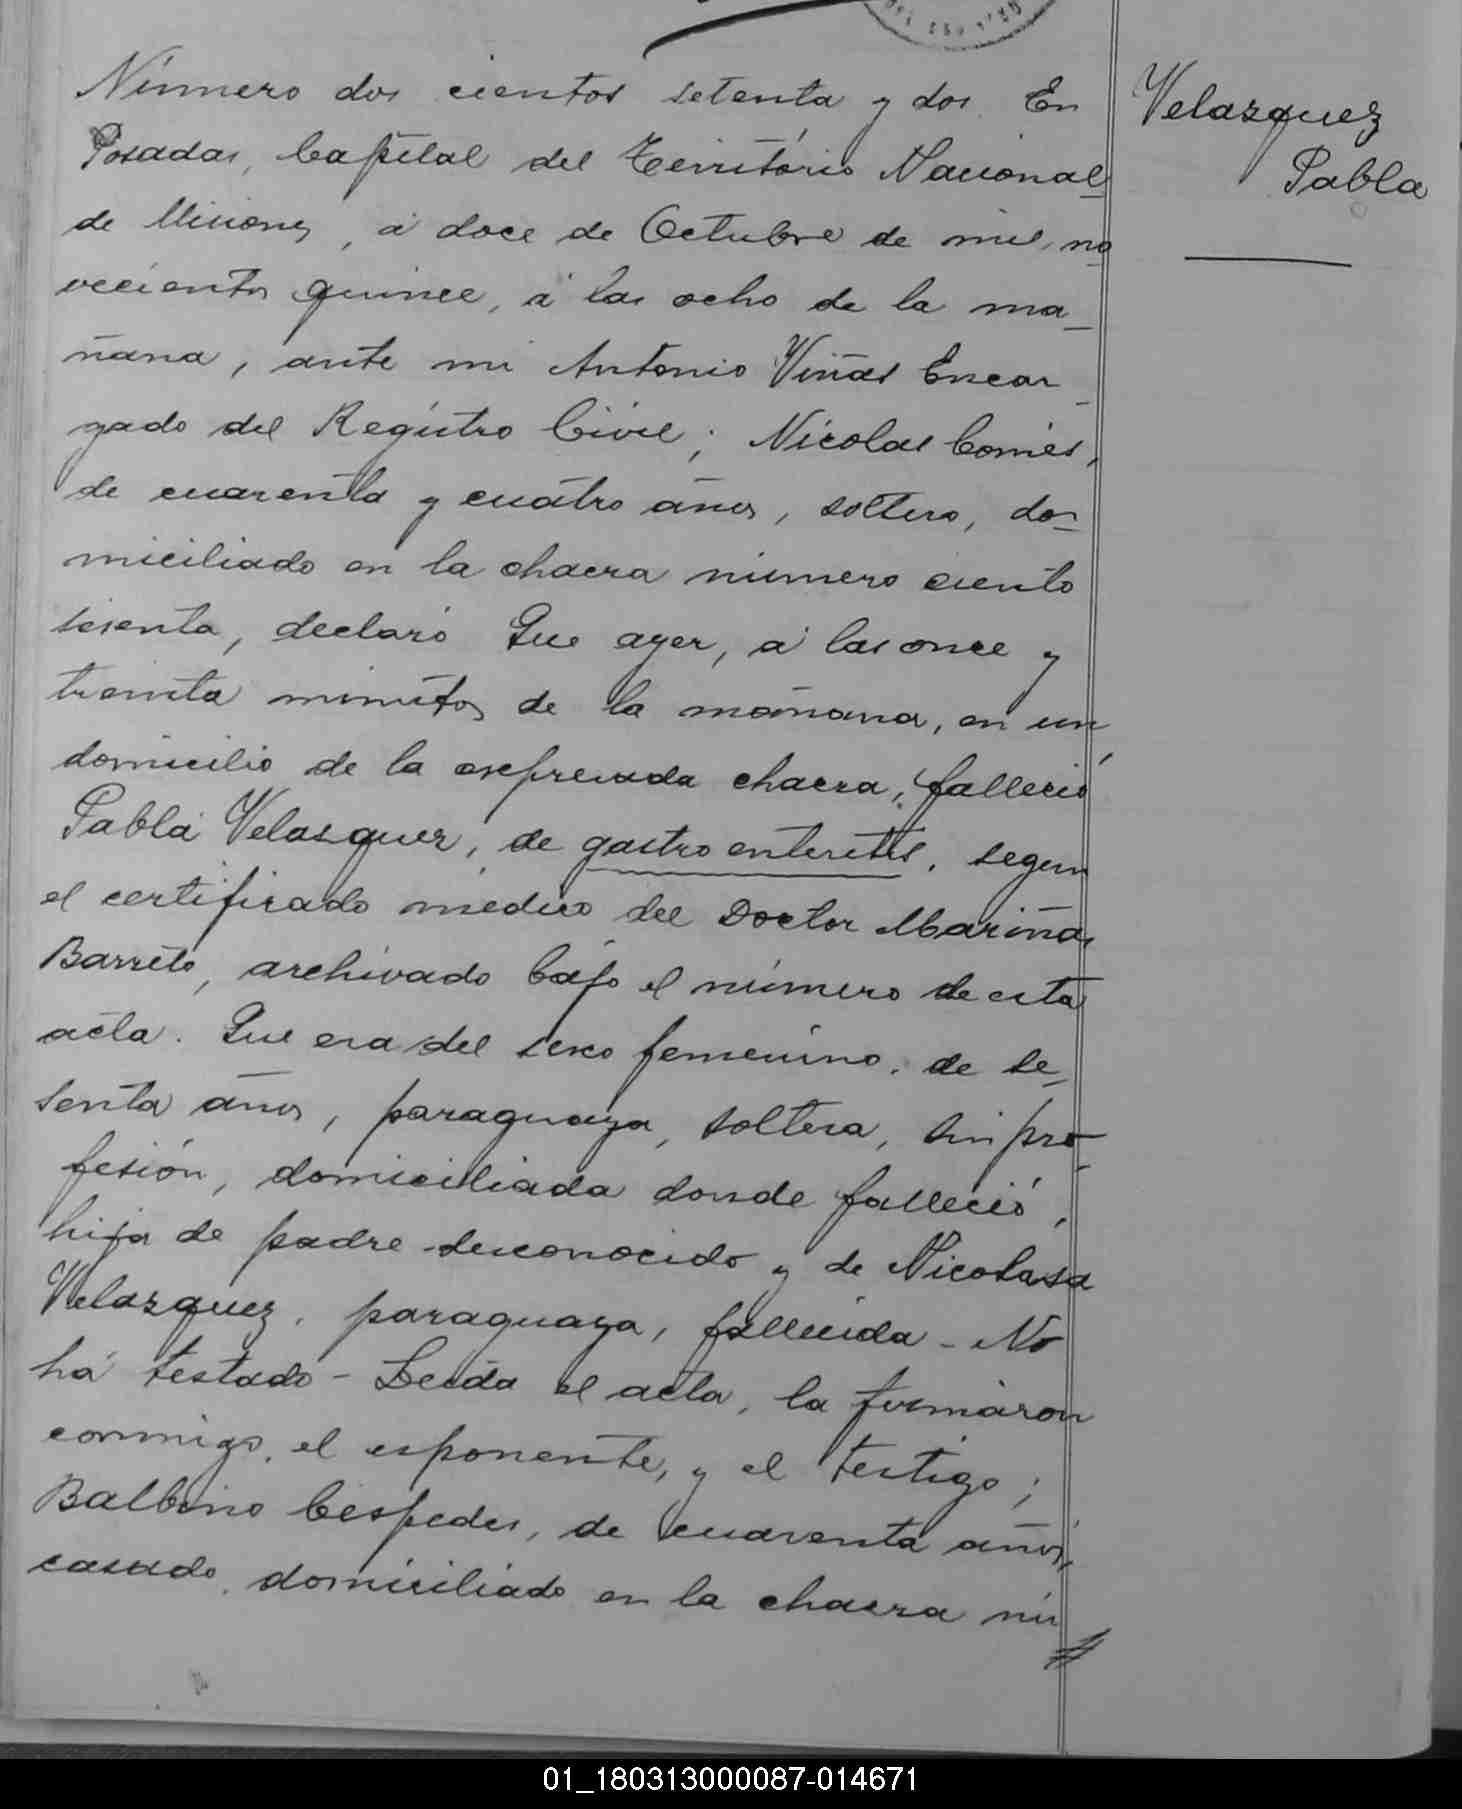 Número dos cientos setenta y dos. En
Posadas, Capital del Território Nacional
de Misiones, á doce de Octubre de mil, no
vecientos quince, á las ocho de la ma_
ñana, ante mi Antonio Viñas Encar_
gado del Registro Civil; Nicolas Comes,
de cuarenta y cuatro años, soltero, do_
miciliado en la chacra número ciento
sesenta, declaró Que ayer, á las once y
treinta minutos de la mañana, en un
domicilio de la expresada chacra, falleció
Pabla Velasquez, de gastro enteretis, segun
el certificado médico del Doctor Mariñas
Barreto, archivado bajo el número de esta
acta. Que era del sexo femenino, de se_
senta años, paraguaya, soltera, sin pro_
fesión, domiciliada donde falleció,
hija de padre desconocido y de Nicolasa
Velazquez, paraguaya, fallecida - No
há testado - Leida el acta, la firmaron
conmigo, el esponente, y el testigo;
Balbino Céspedes, de cuarenta años,
casado, domiciliado en la chacra nú
Velazquez
Pabla
01_180313000087-014671